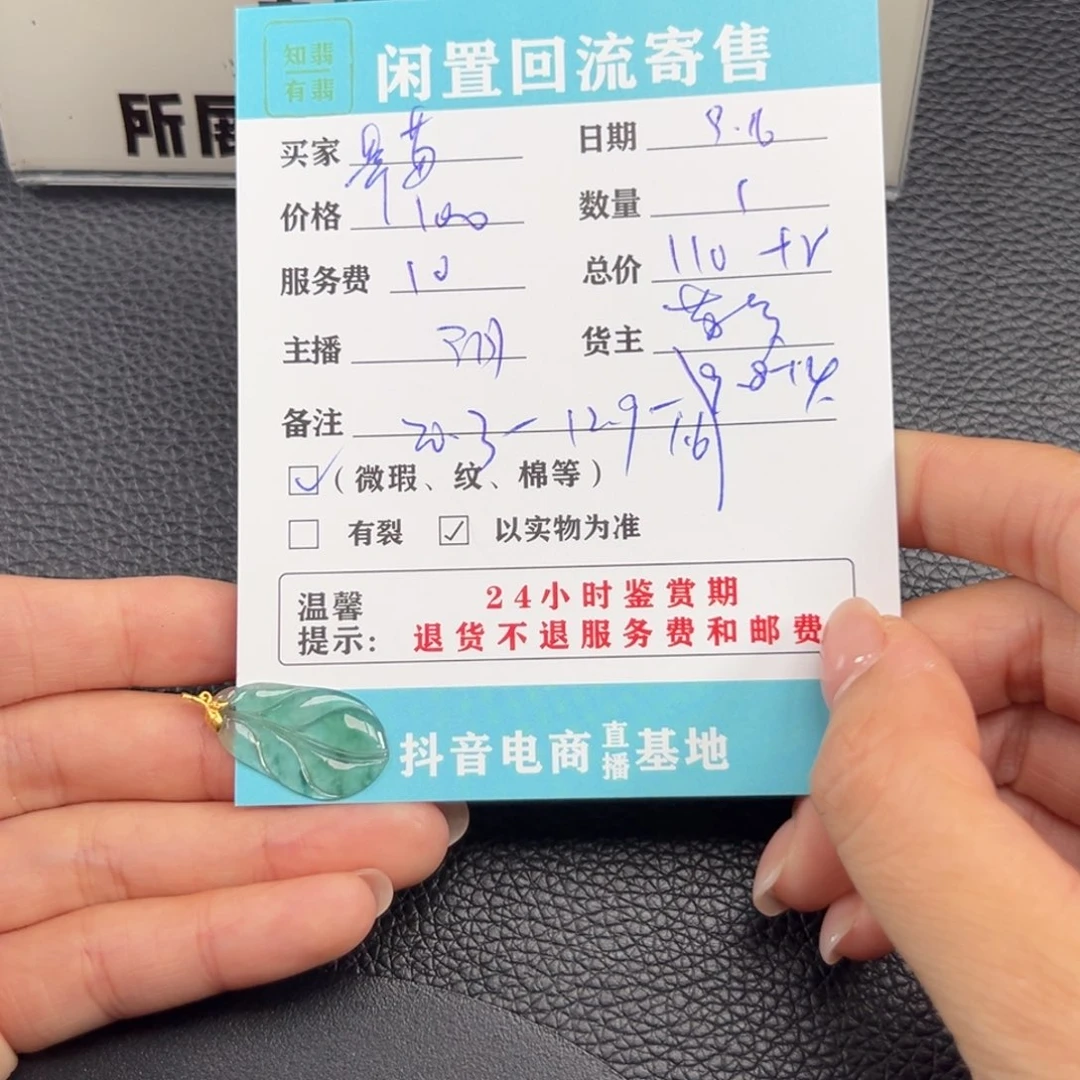 所展
知翡
有翡
闲置回流寄售
买家 草莓 日期 9.16
价格 100 数量 1
服务费 10 总价 110 +V
主播 货主
备注 20.3-12.9-1.6
(微瑕、纹、棉等)
有裂 ✓ 以实物为准
温馨提示: 24小时鉴赏期
退货不退服务费和邮费
抖音电商直播基地